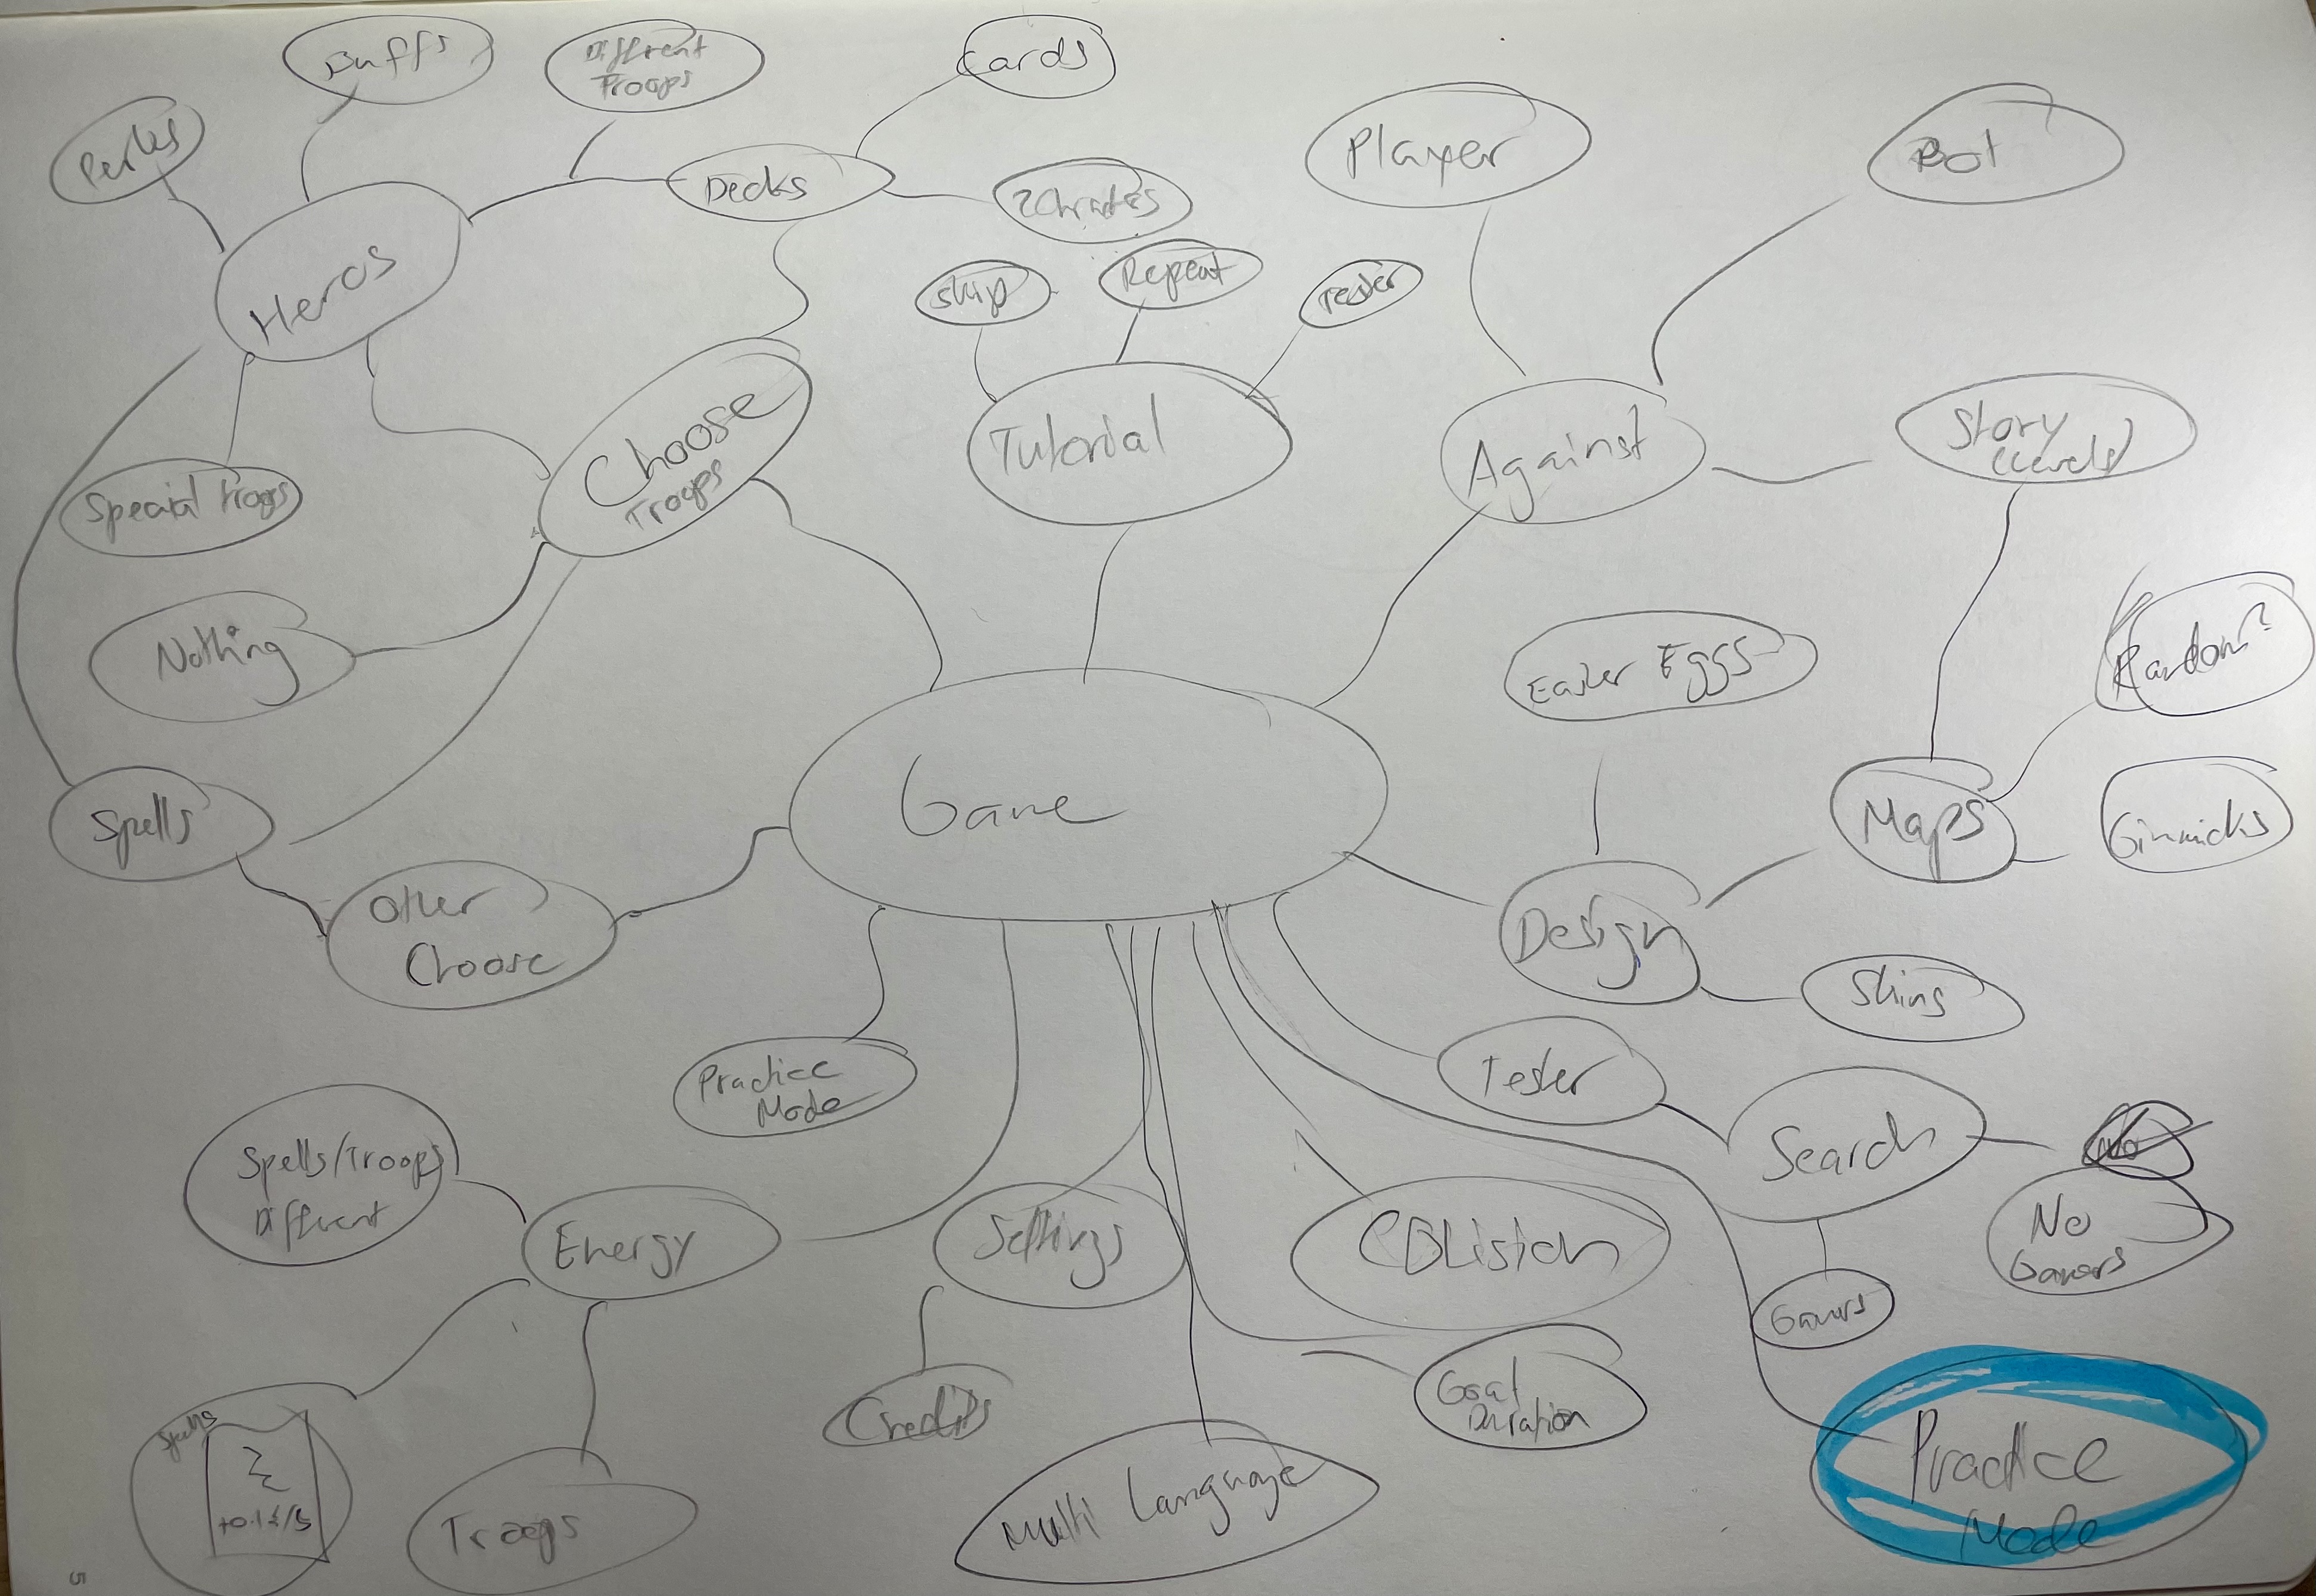 Buffs
Different
Troops
Cards
Perks
Decks
Player
Bot
Heros
Skip
Repeat
Tester
Choose
Troops
Tutorial
Against
Story
(Levels)
Special Troops
Nothing
Easter Eggs
Random?
Spells
Game
Maps
Gimmicks
Other
Choose
Design
Skins
Practice
Mode
Tester
Search
Spells/Troops
Different
Energy
Settings
No
Gamers
Gamers
Credits
Goal
Duration
Spells
+0.1
Troops
Multi Language
Practice
Mode
5